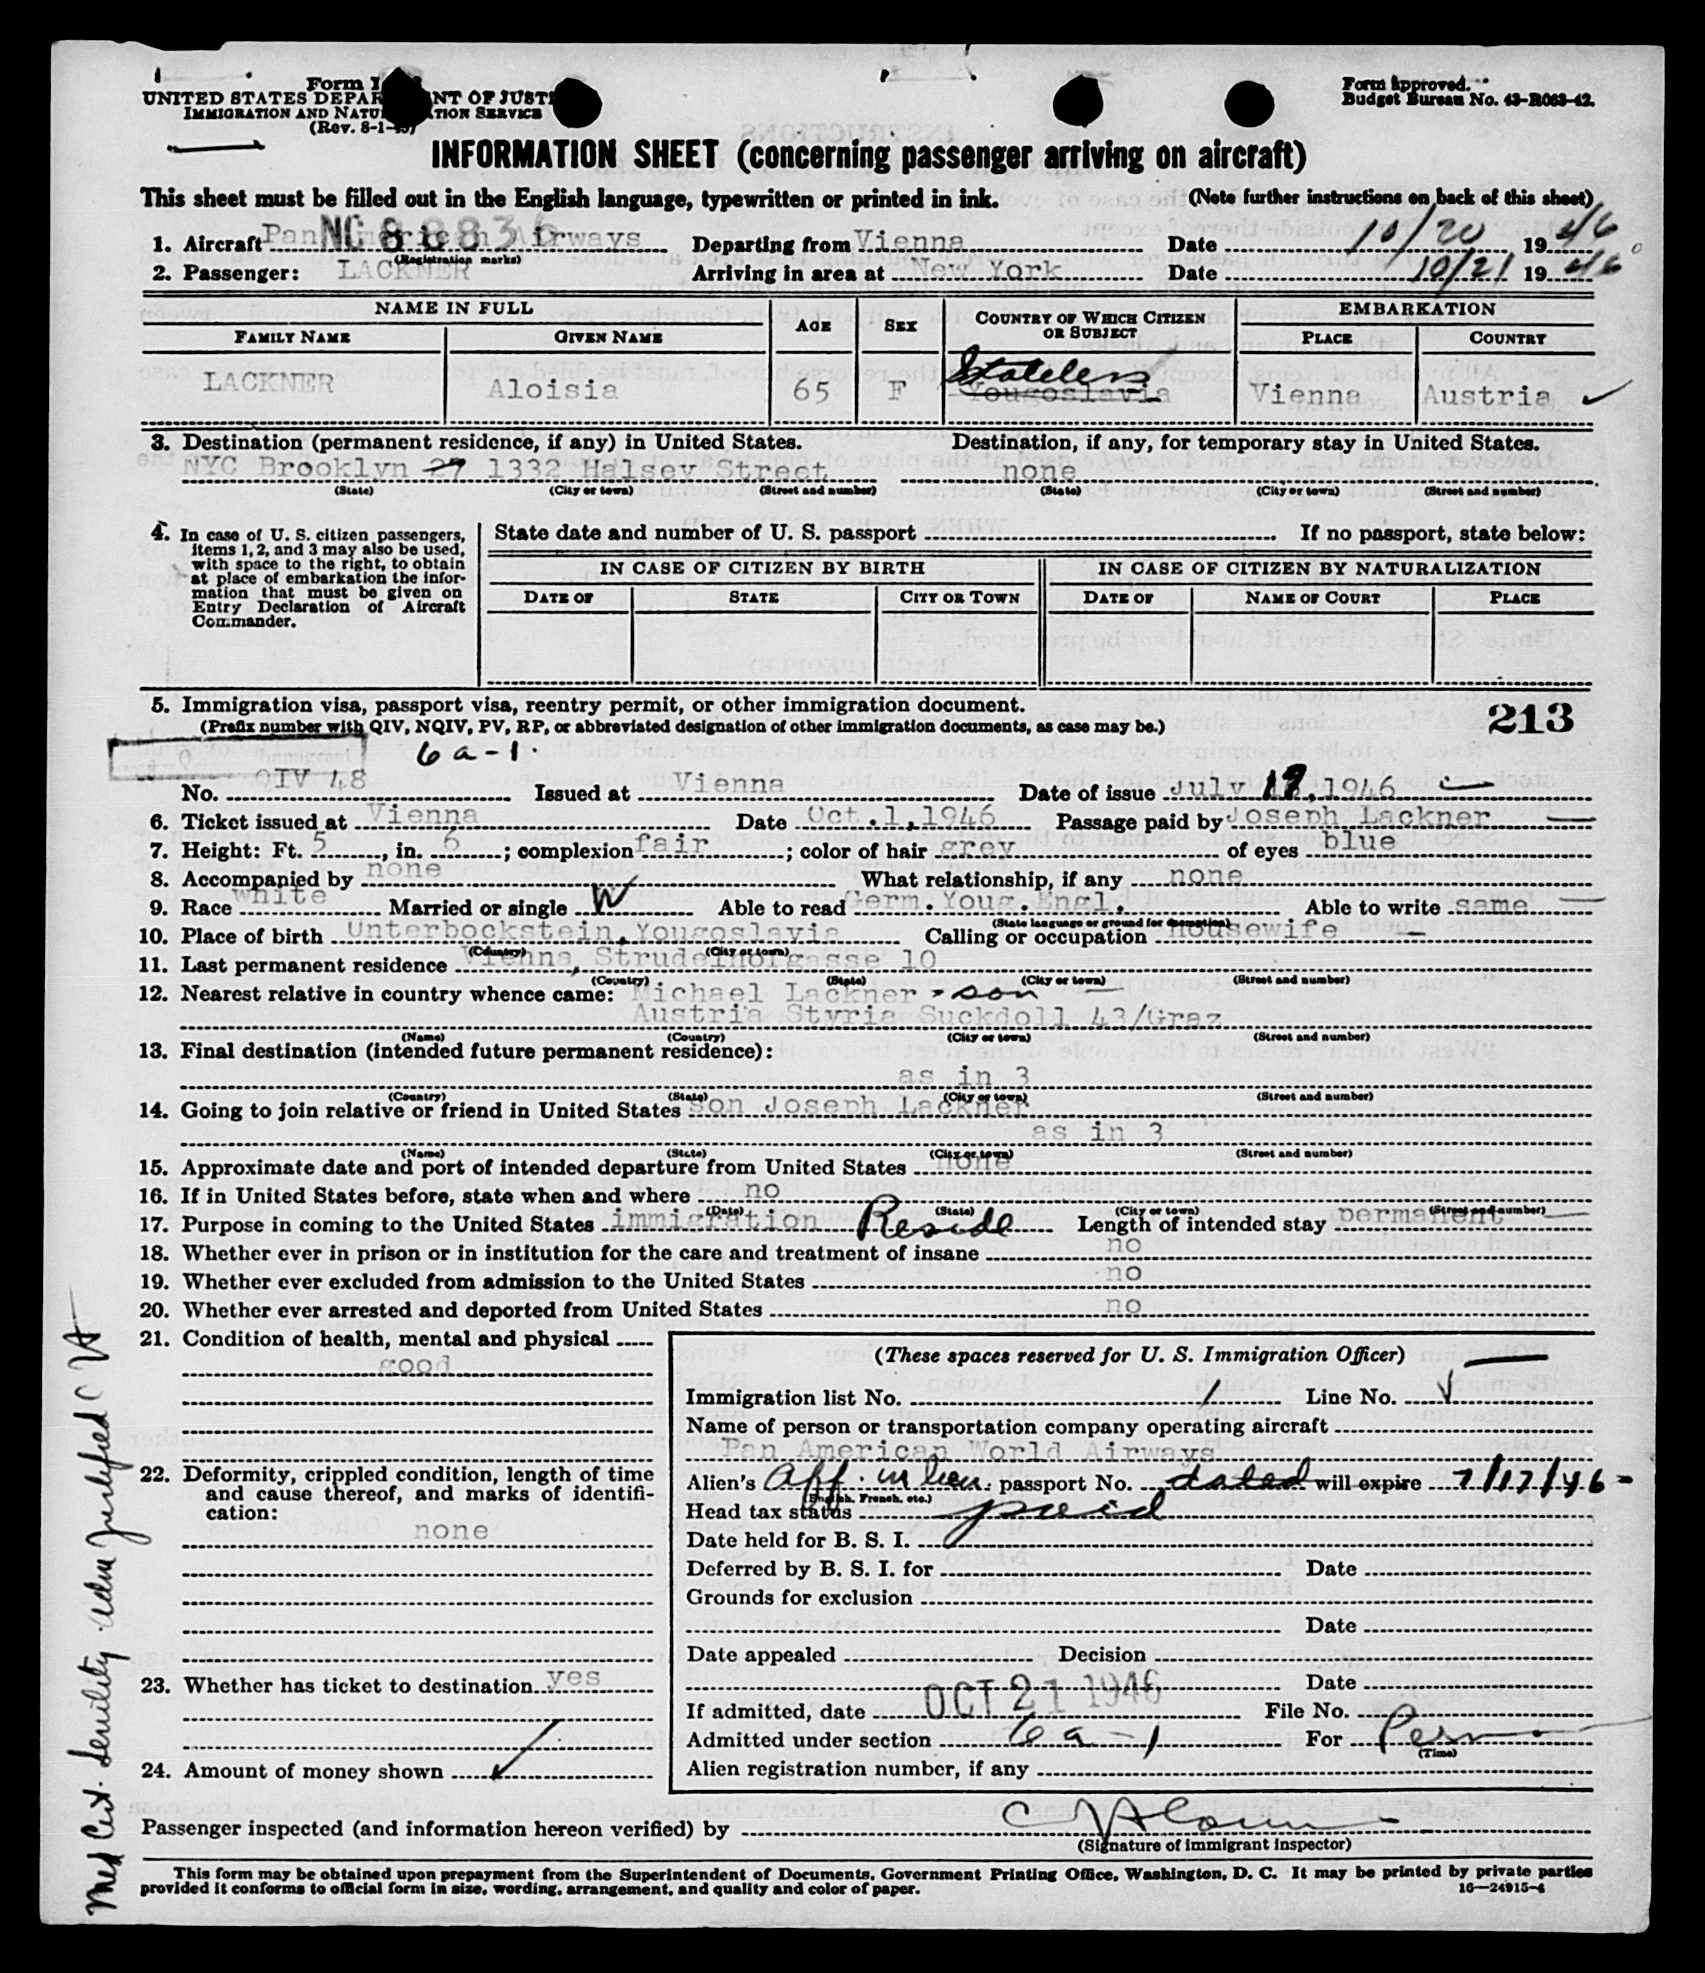 Form I
UNITED STATES DEPARTMENT OF JUSTICE
IMMIGRATION AND NATURALIZATION SERVICE
(Rev. 8-1-45)
Form approved.
Budget Bureau No. 43-R063-42.
INFORMATION SHEET (concerning passenger arriving on aircraft)
This sheet must be filled out in the English language, typewritten or printed in ink. (Note further instructions on back of this sheet)
1. Aircraft Pan American Airways NC 88836 Departing from Vienna Date 10/20 1946
(Registration marks)
2. Passenger: LACKNER Arriving in area at New York Date 10/21 1946
NAME IN FULL AGE SEX COUNTRY OF WHICH CITIZEN OR SUBJECT EMBARKATION
FAMILY NAME GIVEN NAME PLACE COUNTRY
Stateless
LACKNER Aloisia 65 F Yougoslavia Vienna Austria
3. Destination (permanent residence, if any) in United States. Destination, if any, for temporary stay in United States.
NYC Brooklyn 27 1332 Halsey Street none
(State) (City or town) (Street and number) (State) (City or town) (Street and number)
4. In case of U. S. citizen passengers, items 1, 2, and 3 may also be used, with space to the right, to obtain at place of embarkation the information that must be given on Entry Declaration of Aircraft Commander.
State date and number of U. S. passport If no passport, state below:
IN CASE OF CITIZEN BY BIRTH IN CASE OF CITIZEN BY NATURALIZATION
DATE OF STATE CITY OR TOWN DATE OF NAME OF COURT PLACE
5. Immigration visa, passport visa, reentry permit, or other immigration document.
(Prefix number with QIV, NQIV, PV, RP, or abbreviated designation of other immigration documents, as case may be.)
213
6a-1.
No. QIV 48 Issued at Vienna Date of issue July 17, 1946
6. Ticket issued at Vienna Date Oct.1,1946 Passage paid by Joseph Lackner
7. Height: Ft. 5, in. 6; complexion fair; color of hair grey of eyes blue
8. Accompanied by none What relationship, if any none
9. Race white Married or single W Able to read Germ.Youg.Engl. Able to write same
(State language or ground for exemption)
10. Place of birth Unterbockstein,Yougoslavia Calling or occupation housewife
(Country) (City or town)
11. Last permanent residence Vienna, Strudelhofgasse 10
(Country) (State) (City or town) (Street and number)
12. Nearest relative in country whence came: Michael Lackner - son
Austria Styria Suckdoll 43/Graz
(Name) (Country) (City or town) (Street and number)
13. Final destination (intended future permanent residence):
as in 3
(Country) (State) (City or town) (Street and number)
14. Going to join relative or friend in United States son Joseph Lackner
as in 3
(Name) (State) (City or town) (Street and number)
15. Approximate date and port of intended departure from United States none
16. If in United States before, state when and where no
(Date) (State) (City or town) (Street and number)
17. Purpose in coming to the United States immigration Reside Length of intended stay permanent
18. Whether ever in prison or in institution for the care and treatment of insane no
19. Whether ever excluded from admission to the United States no
20. Whether ever arrested and deported from United States no
21. Condition of health, mental and physical
good
22. Deformity, crippled condition, length of time and cause thereof, and marks of identification:
none
23. Whether has ticket to destination yes
24. Amount of money shown
(These spaces reserved for U. S. Immigration Officer)
Immigration list No. 1 Line No.
Name of person or transportation company operating aircraft
Pan American World Airways
Alien's Aff. in lieu passport No. dated will expire 7/17/46
(English, French, etc.)
Head tax status paid
Date held for B. S. I.
Deferred by B. S. I. for Date
Grounds for exclusion
Date
Date appealed Decision
Date
If admitted, date OCT 21 1946 File No.
Admitted under section 6a-1 For Perm.
(Time)
Alien registration number, if any
Passenger inspected (and information hereon verified) by
(Signature of immigrant inspector)
This form may be obtained upon prepayment from the Superintendent of Documents, Government Printing Office, Washington, D. C. It may be printed by private parties
provided it conforms to official form in size, wording, arrangement, and quality and color of paper. 16—24915-4
Med Cert. Senility